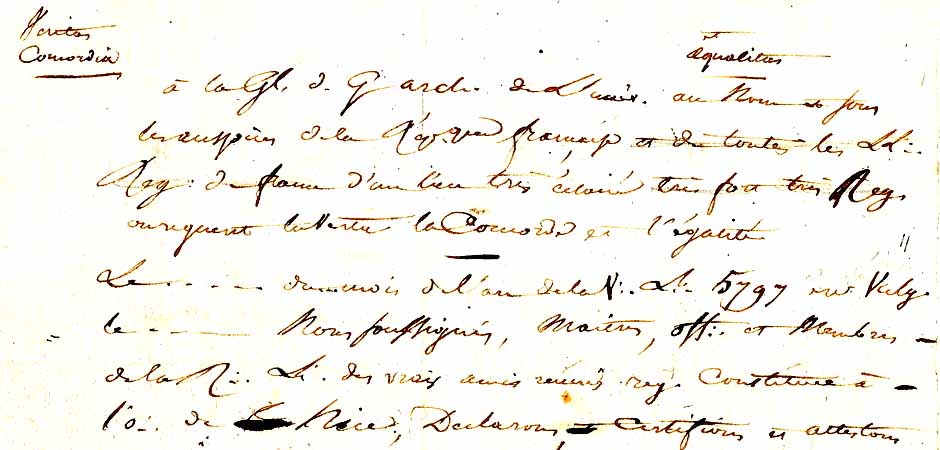 Veritas
Concordia
et
æqualitas
à la Gl. de G arch. de L'univ. au Nom et sous
les auspices de la Rép. que française et de toutes les LL∴
Reg∴ de france d'un lieu très éclairé très fort très Reg.
ou regnent la Vertu la Concorde et l'égalité
Le - - - - du mois de l'an de la V∴ L∴ 5797 ere Vulg.
le - - - Nous soussignés, Maitres, off∴ et Membres
de la R∴ L∴ des vrais amis réunis reg. Constituée à
l'o∴ de Nice, Declarons, Certifions et attestons